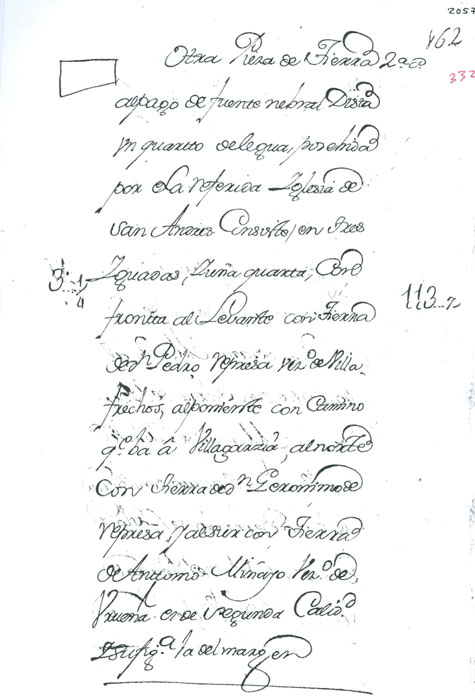 2057
462
332
Otra Pieza de Tierra 2.ª C.
al pago de fuente nebral Dista
Un quarto de legua, posehida
por la referida Iglesia de
San Andres Consiste, en tres
3. 1/4
Yguadas, y uña quarta, Con
113..2
frontta al Levantte con Tierra
de dn Pedro represa vez.º de Villa
frechos, al ponientte con Camino
q.e bà â Villagarzia, al nortte
Con tierra de dn Geronimo de
represa, y al sur con Tierra
de Anttonio Miñayo Vez.º de,
Urueña es de segunda Calid.
su fig.ª la del margen